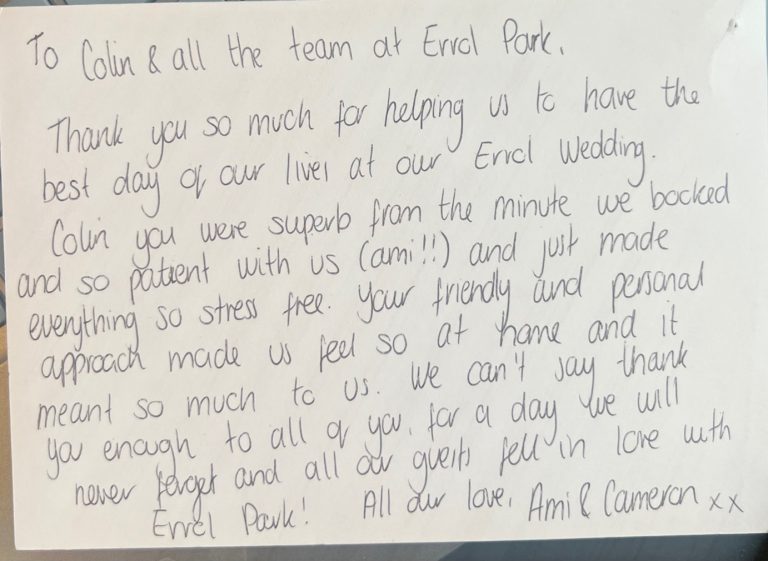 To Colin & all the team at Errol Park,
Thank you so much for helping us to have the
best day of our lives at our Errol Wedding.
Colin you were superb from the minute we booked
and so patient with us (ami!!) and just made
everything so stress free. Your friendly and personal
approach made us feel so at home and it
meant so much to us. We can't say thank
you enough to all of you, for a day we will
never forget and all our guests fell in love with
Errol Park! All our love, Ami & Cameron xx